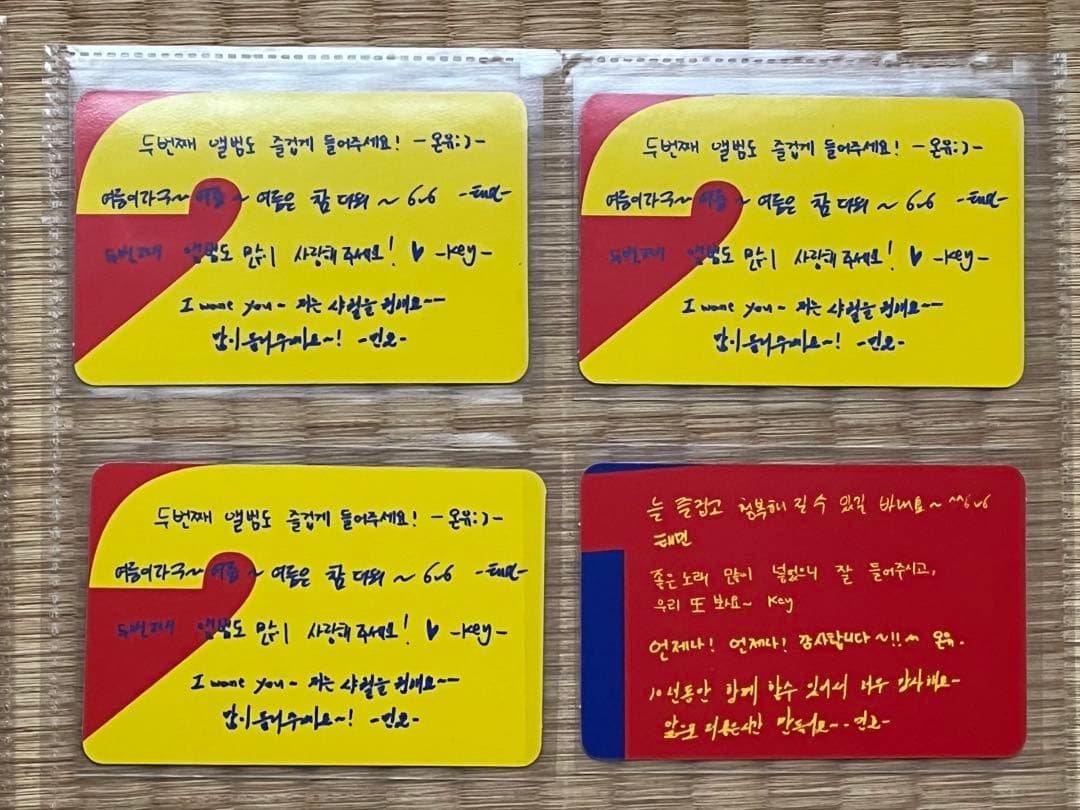 두번째 앨범도 즐겁게 들어주세요! -온유:)-
여름이라구~ 여름 ~ 여름은 참 더워 ~ 6v6 -태민-
두번째 앨범도 많이 사랑해주세요! ♥ -Key-
I want you~ 저는 샤월을 원해요~~
많이 들어주세요~! -민호-
두번째 앨범도 즐겁게 들어주세요! -온유:)-
여름이라구~ 여름 ~ 여름은 참 더워 ~ 6v6 -태민-
두번째 앨범도 많이 사랑해주세요! ♥ -Key-
I want you~ 저는 샤월을 원해요~~
많이 들어주세요~! -민호-
두번째 앨범도 즐겁게 들어주세요! -온유:)-
여름이라구~ 여름 ~ 여름은 참 더워 ~ 6v6 -태민-
두번째 앨범도 많이 사랑해주세요! ♥ -Key-
I want you~ 저는 샤월을 원해요~~
많이 들어주세요~! -민호-
늘 즐겁고 행복해질 수 있길 바래요~ ^^6v6
태민
좋은노래 많이 넣었으니 잘 들어주시고,
우리 또 봐요~ Key
언제나! 언제나! 감사합니다~!!^^ 온유.
10년동안 함께 할수 있어서 너무 감사해요~
앞으로 시간 민호-